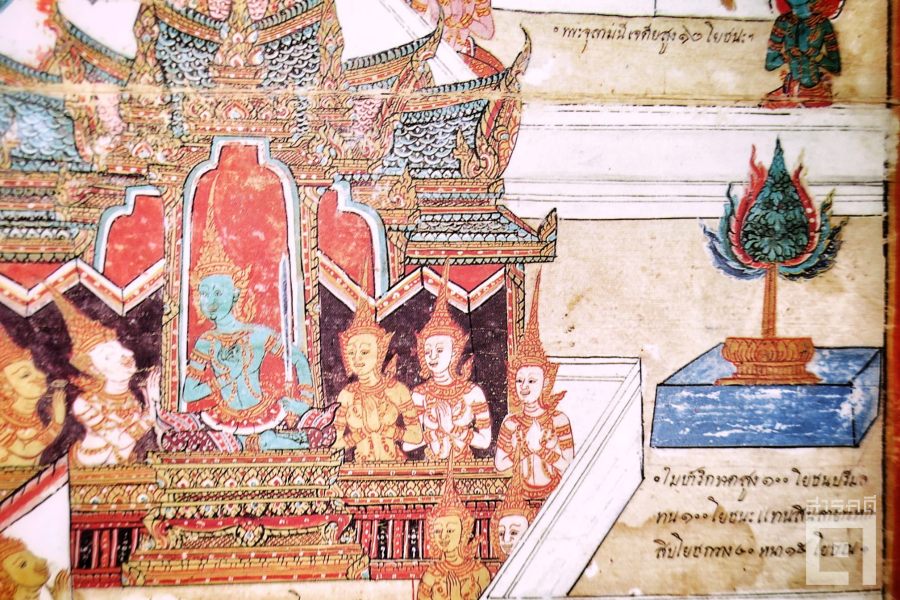 ๏ พระจุลามณีเจดียสูง ๑๐ โยชนะฯ
๏ ไมปาริกชาตสูง ๑๐๐ โยชนปริม
ทน ๑๐๐ โยชนะแทนสิลา
ลิบโยชกวาง ๔๐ หนา ๑๕ โยชน ๏
สารคดี